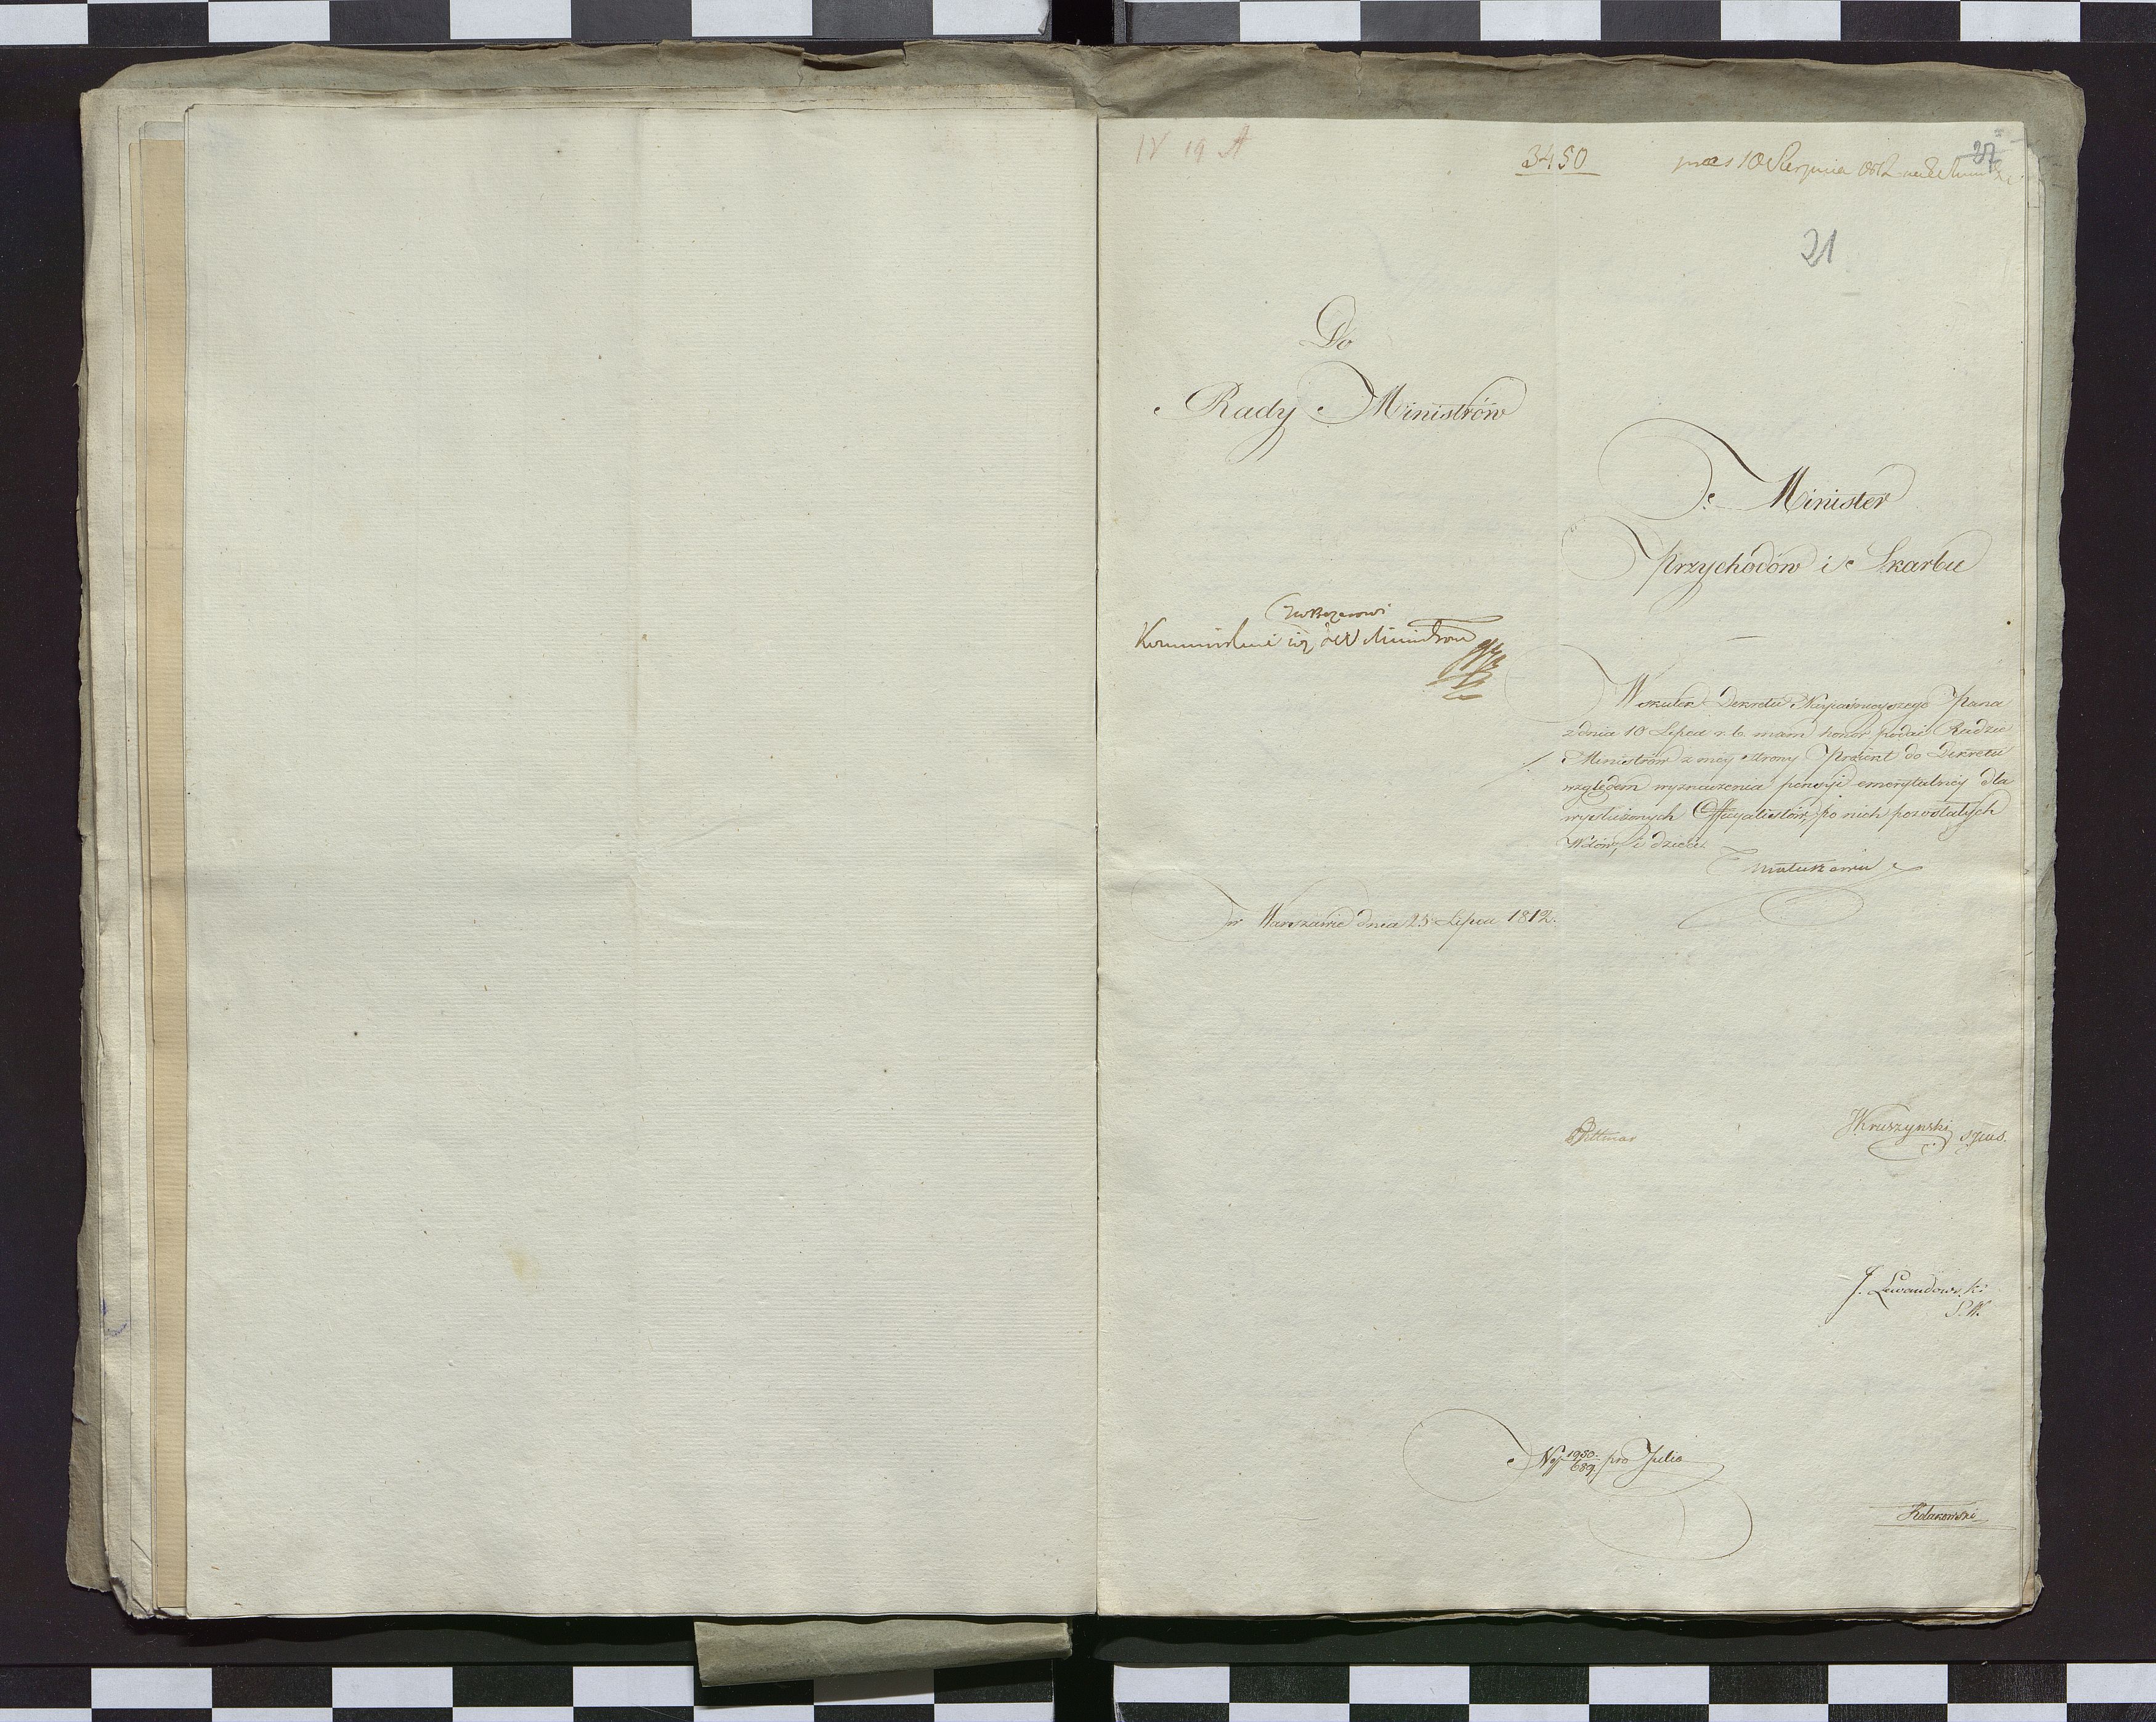 IV 19 A
3450
praes 10 Sierpnia 1812
27
21
Do
Rady Ministrów
Minister
Przychodów i Skarbu
W skutek Dekretu Nayiaśnieyszego Pana
z dnia 10 Lipca r. b. mam honor podać Radzie
Ministrów z mey strony Proiekt do Dekretu
względem wyznaczenia pensyi emerytalney dla
wysłużonych Officyalistów, po nich pozostałych
Wdów, i dzieci.
Matuszewic
w Warszawie dnia 25 Lipca 1812.
Dittmar
JKruszynski
J. Lewandowski
No 1950/689 pro Julio
Kolakowski